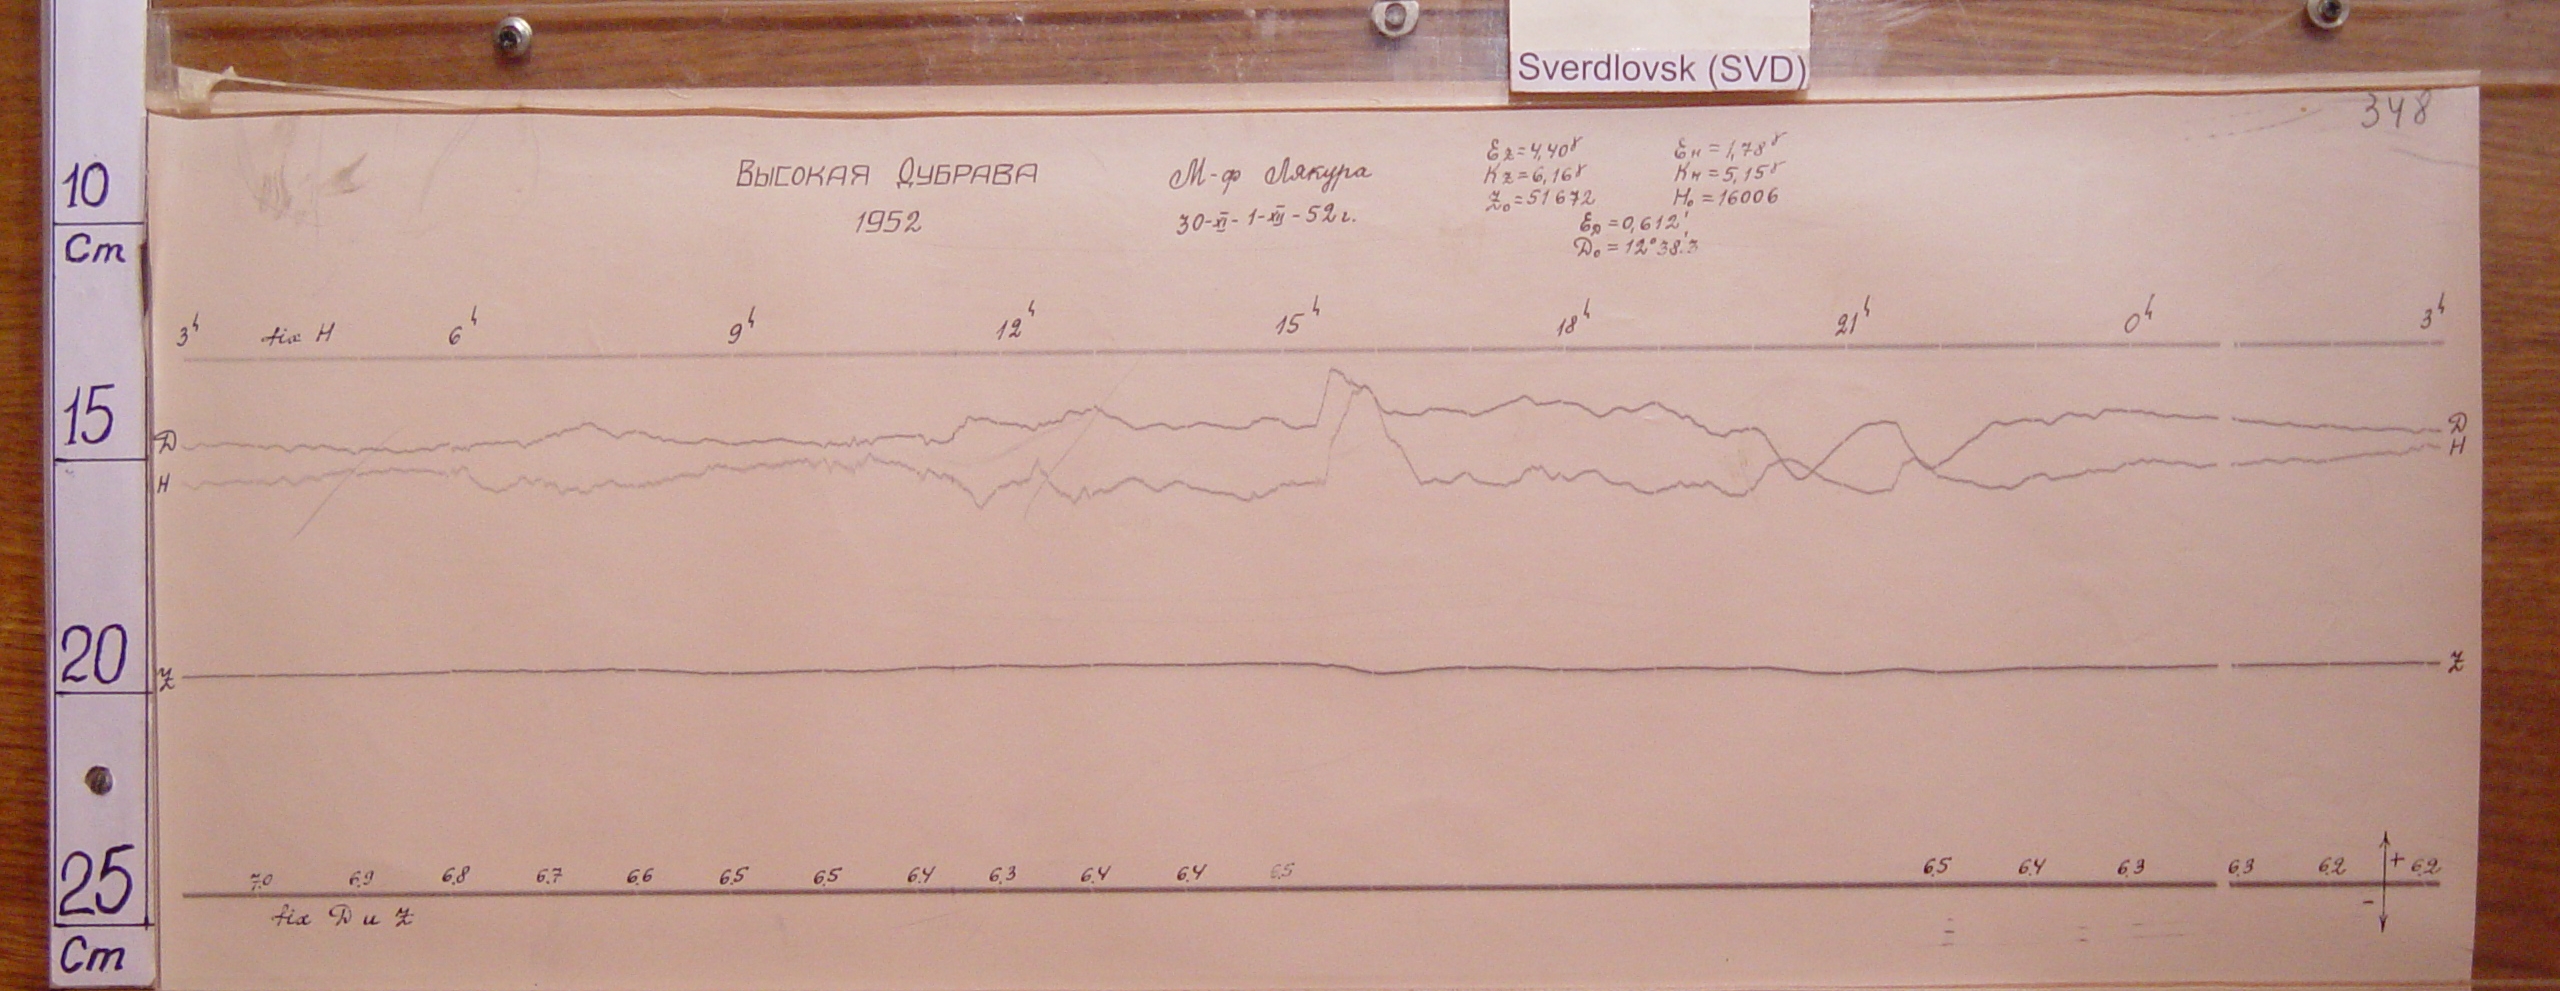 Sverdlovsk (SVD)
348
ВЫСОКАЯ ДУБРАВА
1952
М-ф Лякура
30-XI-1-XII-52г.
Ez=4,40γ Eн=1,78γ
Kz=6,16γ Kн=5,15γ
Z₀=51672 H₀=16006
E_D=0,612'
D₀=12°38.'3
3h fix H 6h 9h 12h 15h 18h 21h 0h 3h
D D
H H
Z Z
7,0 6,9 6,8 6,7 6,6 6,5 6,5 6,4 6,3 6,4 6,4 6,5 6,5 6,4 6,3 6,3 6,2 + 6,2
-
fix D и Z
10
Cm
15
20
25
Cm